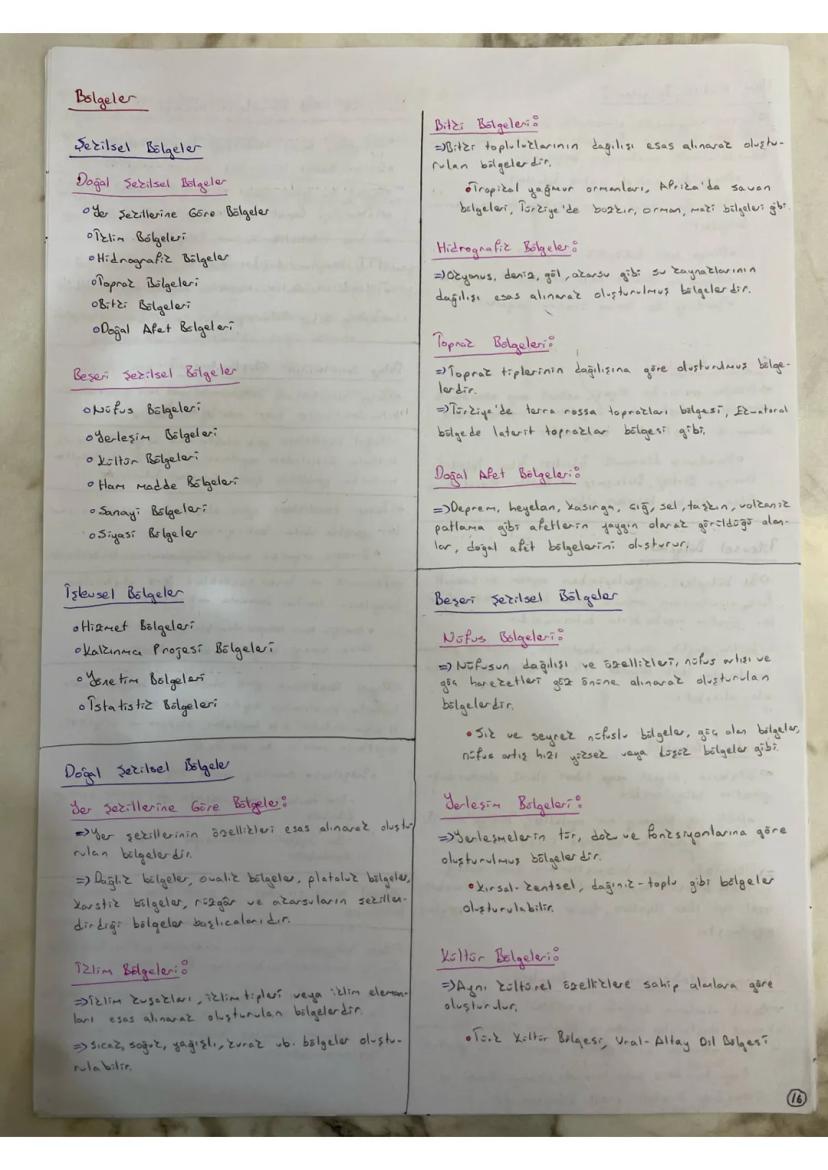 Bölgeler
Şekilsel Bölgeler
Doğal Şekilsel Bölgeler
Yer Şekillerine Göre Bölgeler
İklim Bölgeleri
Hidrografik Bölgeler
Toprak Bölgeleri
Bitki Bölgeleri
Doğal Afet Bölgeleri
Beşeri Şekilsel Bölgeler
Nüfus Bölgeleri
Yerleşim Bölgeleri
Kültür Bölgeleri
Ham Madde Bölgeleri
Sanayi Bölgeleri
Siyasi Bölgeler
İşlevsel Bölgeler
Hizmet Bölgeleri
Kalkınma Projesi Bölgeleri
Yönetim Bölgeleri
İstatistik Bölgeleri
Doğal Şekilsel Bölgeler
Yer Şekillerine Göre Bölgeler:
⇒Yer şekillerinin özellikleri esas alınarak oluştu-
rulan bölgelerdir.
⇒Dağlık bölgeler, ovalık bölgeler, platoluk bölgeler,
karstik bölgeler, rüzgâr ve akarsuların şekillen-
dirdiği bölgeler başlıcalarıdır.
İklim Bölgeleri:
⇒İklim kuşakları, iklim tipleri veya iklim eleman-
ları esas alınarak oluşturulan bölgelerdir.
⇒Sıcak, soğuk, yağışlı, kurak vb. bölgeler oluştu-
rulabilir.
Bitki Bölgeleri:
⇒Bitki topluluklarının dağılışı esas alınarak oluştu-
rulan bölgelerdir.
•Tropikal yağmur ormanları, Afrika'da savan
bölgeleri, Türkiye'de bozkır, orman, maki bölgeleri gibi.
Hidrografik Bölgeler:
⇒Okyanus, deniz, göl, akarsu gibi su kaynaklarının
dağılışı esas alınarak oluşturulmuş bölgelerdir.
Toprak Bölgeleri:
⇒Toprak tiplerinin dağılışına göre oluşturulmuş bölge-
lerdir.
⇒Türkiye'de terra rossa toprakları bölgesi, Ekvatoral
bölgede laterit topraklar bölgesi gibi.
Doğal Afet Bölgeleri:
⇒Deprem, heyelan, kasırga, çığ, sel, taşkın, volkanik
patlama gibi afetlerin yaygın olarak görüldüğü alan-
lar, doğal afet bölgelerini oluşturur.
Beşeri Şekilsel Bölgeler
Nüfus Bölgeleri:
⇒Nüfusun dağılışı ve özellikleri, nüfus artışı ve
göç hareketleri göz önüne alınarak oluşturulan
bölgelerdir.
•Sık ve seyrek nüfuslu bölgeler, göç alan bölgeler,
nüfus artış hızı yüksek veya düşük bölgeler gibi.
Yerleşim Bölgeleri:
⇒Yerleşmelerin tür, doku ve fonksiyonlarına göre
oluşturulmuş bölgelerdir.
•Kırsal-kentsel, dağınık-toplu gibi bölgeler
oluşturulabilir.
Kültür Bölgeleri:
⇒Aynı kültürel özelliklere sahip alanlara göre
oluşturulur.
•Türk Kültür Bölgesi, Ural-Altay Dil Bölgesi
16